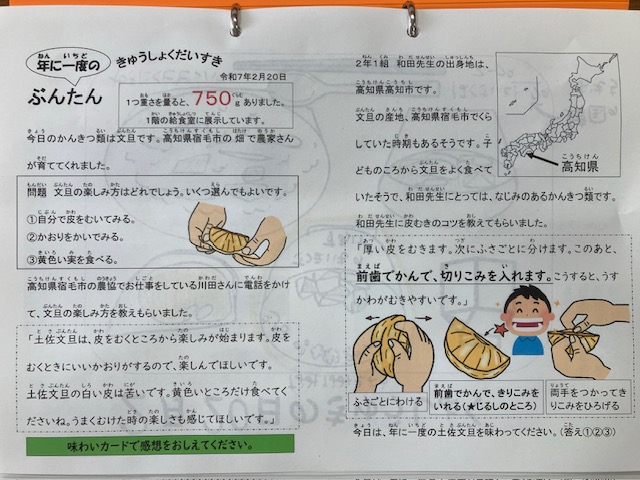 年に一度の
ぶんたん
きゅうしょくだいすき
令和7年2月20日
1つ重さを量ると、750gありました。
1階の給食室に展示しています。
今日のかんきつ類は文旦です。高知県宿毛市の畑で農家さん
が育ててくれました。
問題 文旦の楽しみ方はどれでしょう。いくつ選んでもよいです。
①自分で皮をむいてみる。
②かおりをかいでみる。
③黄色い実を食べる。
高知県宿毛市の農協でお仕事をしている川田さんに電話をかけ
て、文旦の楽しみ方を教えもらいました。
「土佐文旦は、皮をむくところから楽しみが始まります。皮を
むくときにいいかおりがするので、楽しんでほしいです。
土佐文旦の白い皮は苦いです。黄色いところだけ食べてく
ださいね。うまくむけた時の楽しさも感じてほしいです。」
味わいカードで感想をおしえてください。
2年1組 和田先生の出身地は、
高知県高知市です。
文旦の産地、高知県宿毛市でくら
していた時期もあるそうです。子
どものころから文旦をよく食べて
いたそうで、和田先生にとっては、なじみのあるかんきつ類です。
和田先生に皮むきのコツを教えてもらいました。
高知県
「厚い皮をむきます。次にふさごとに分けます。このあと、
前歯でかんで、切りこみを入れます。こうすると、うす
かわがむきやすいです。」
ふさごとにわける
前歯でかんで、きりこみを
いれる(★じるしのところ)
両手をつかってき
りこみをひろげる
今日は、年に一度の土佐文旦を味わってください。(答え①②③)